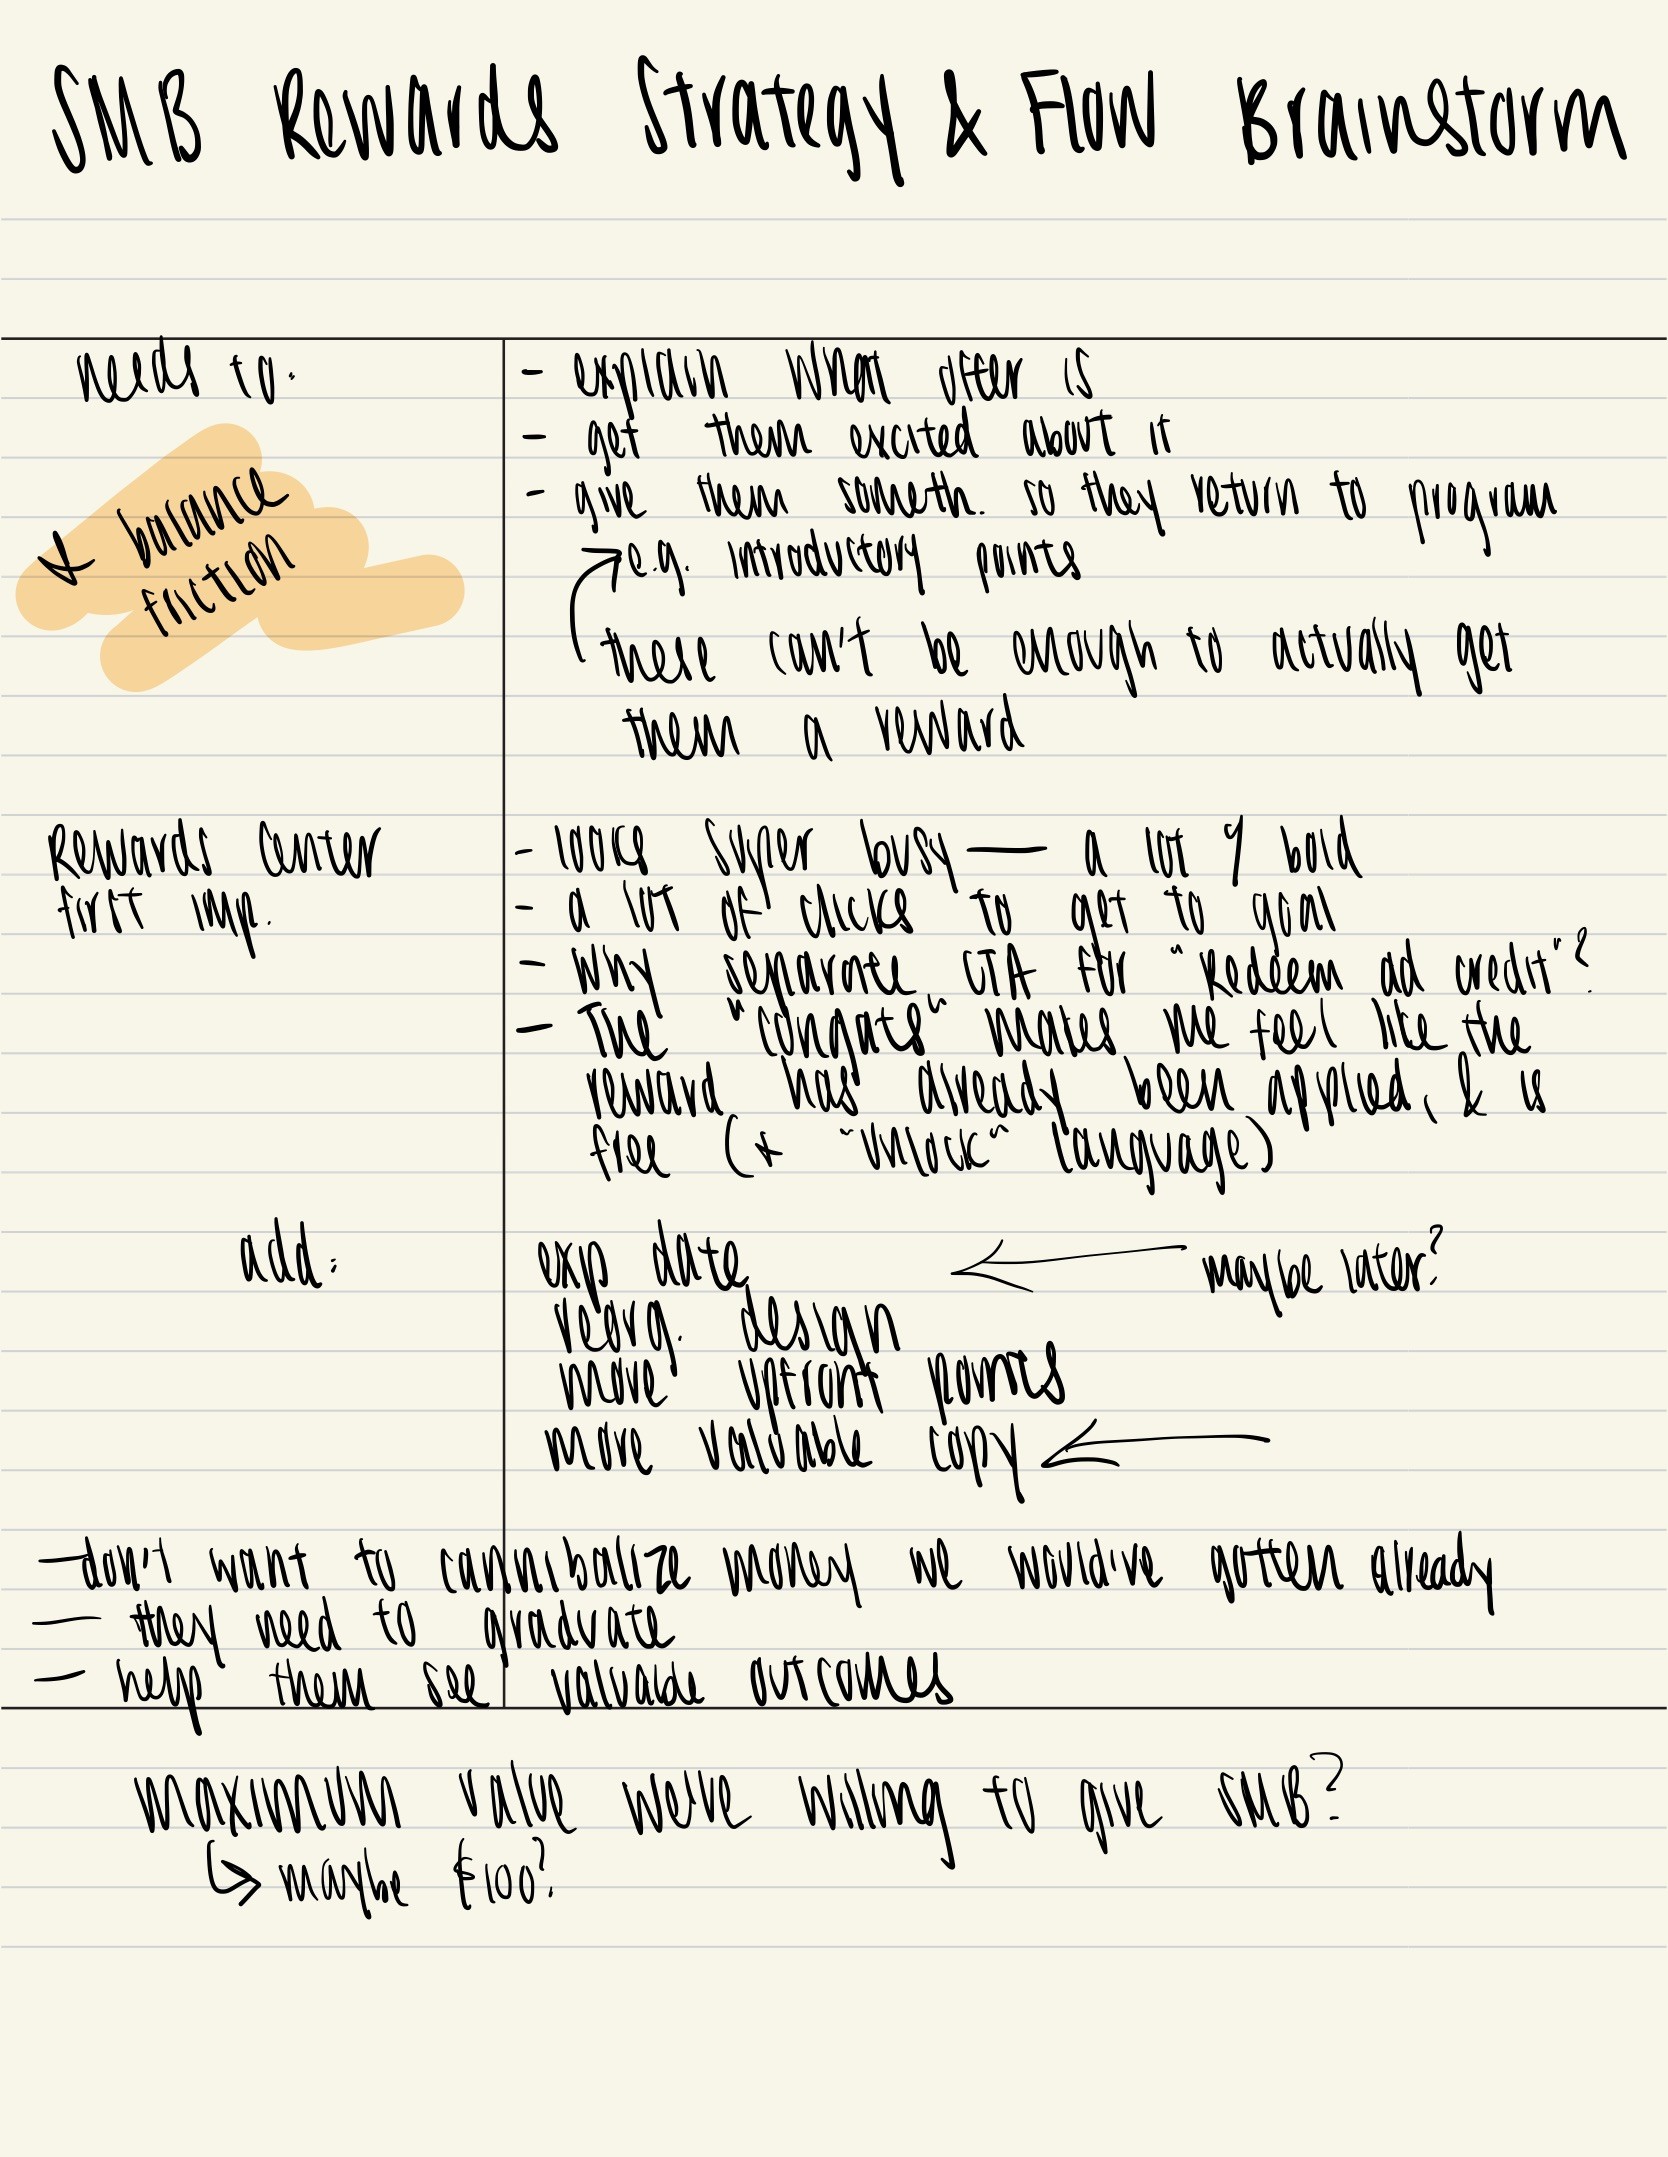 SMB Rewards Strategy & Flow Brainstorm
needs to:
- explain what offer is
- get them excited about it
- give them someth. so they return to program
e.g. introductory points
these can't be enough to actually get
them a reward
& balance
friction
Rewards Center
first imp.
- looks super busy — a lot of bold
- a lot of clicks to get to goal
- Why separate CTA for "Redeem ad credit"?
- The "congats" makes me feel like the
reward has already been applied, & is
free (+ "unlock" language)
add:
exp date ← maybe later?
reorg. design
more upfront points
more valuable copy ←
- don't want to cannibalize money we would've gotten already
- they need to graduate
- help them see valuable outcomes
maximum value we're willing to give SMB?
↳ maybe $100?